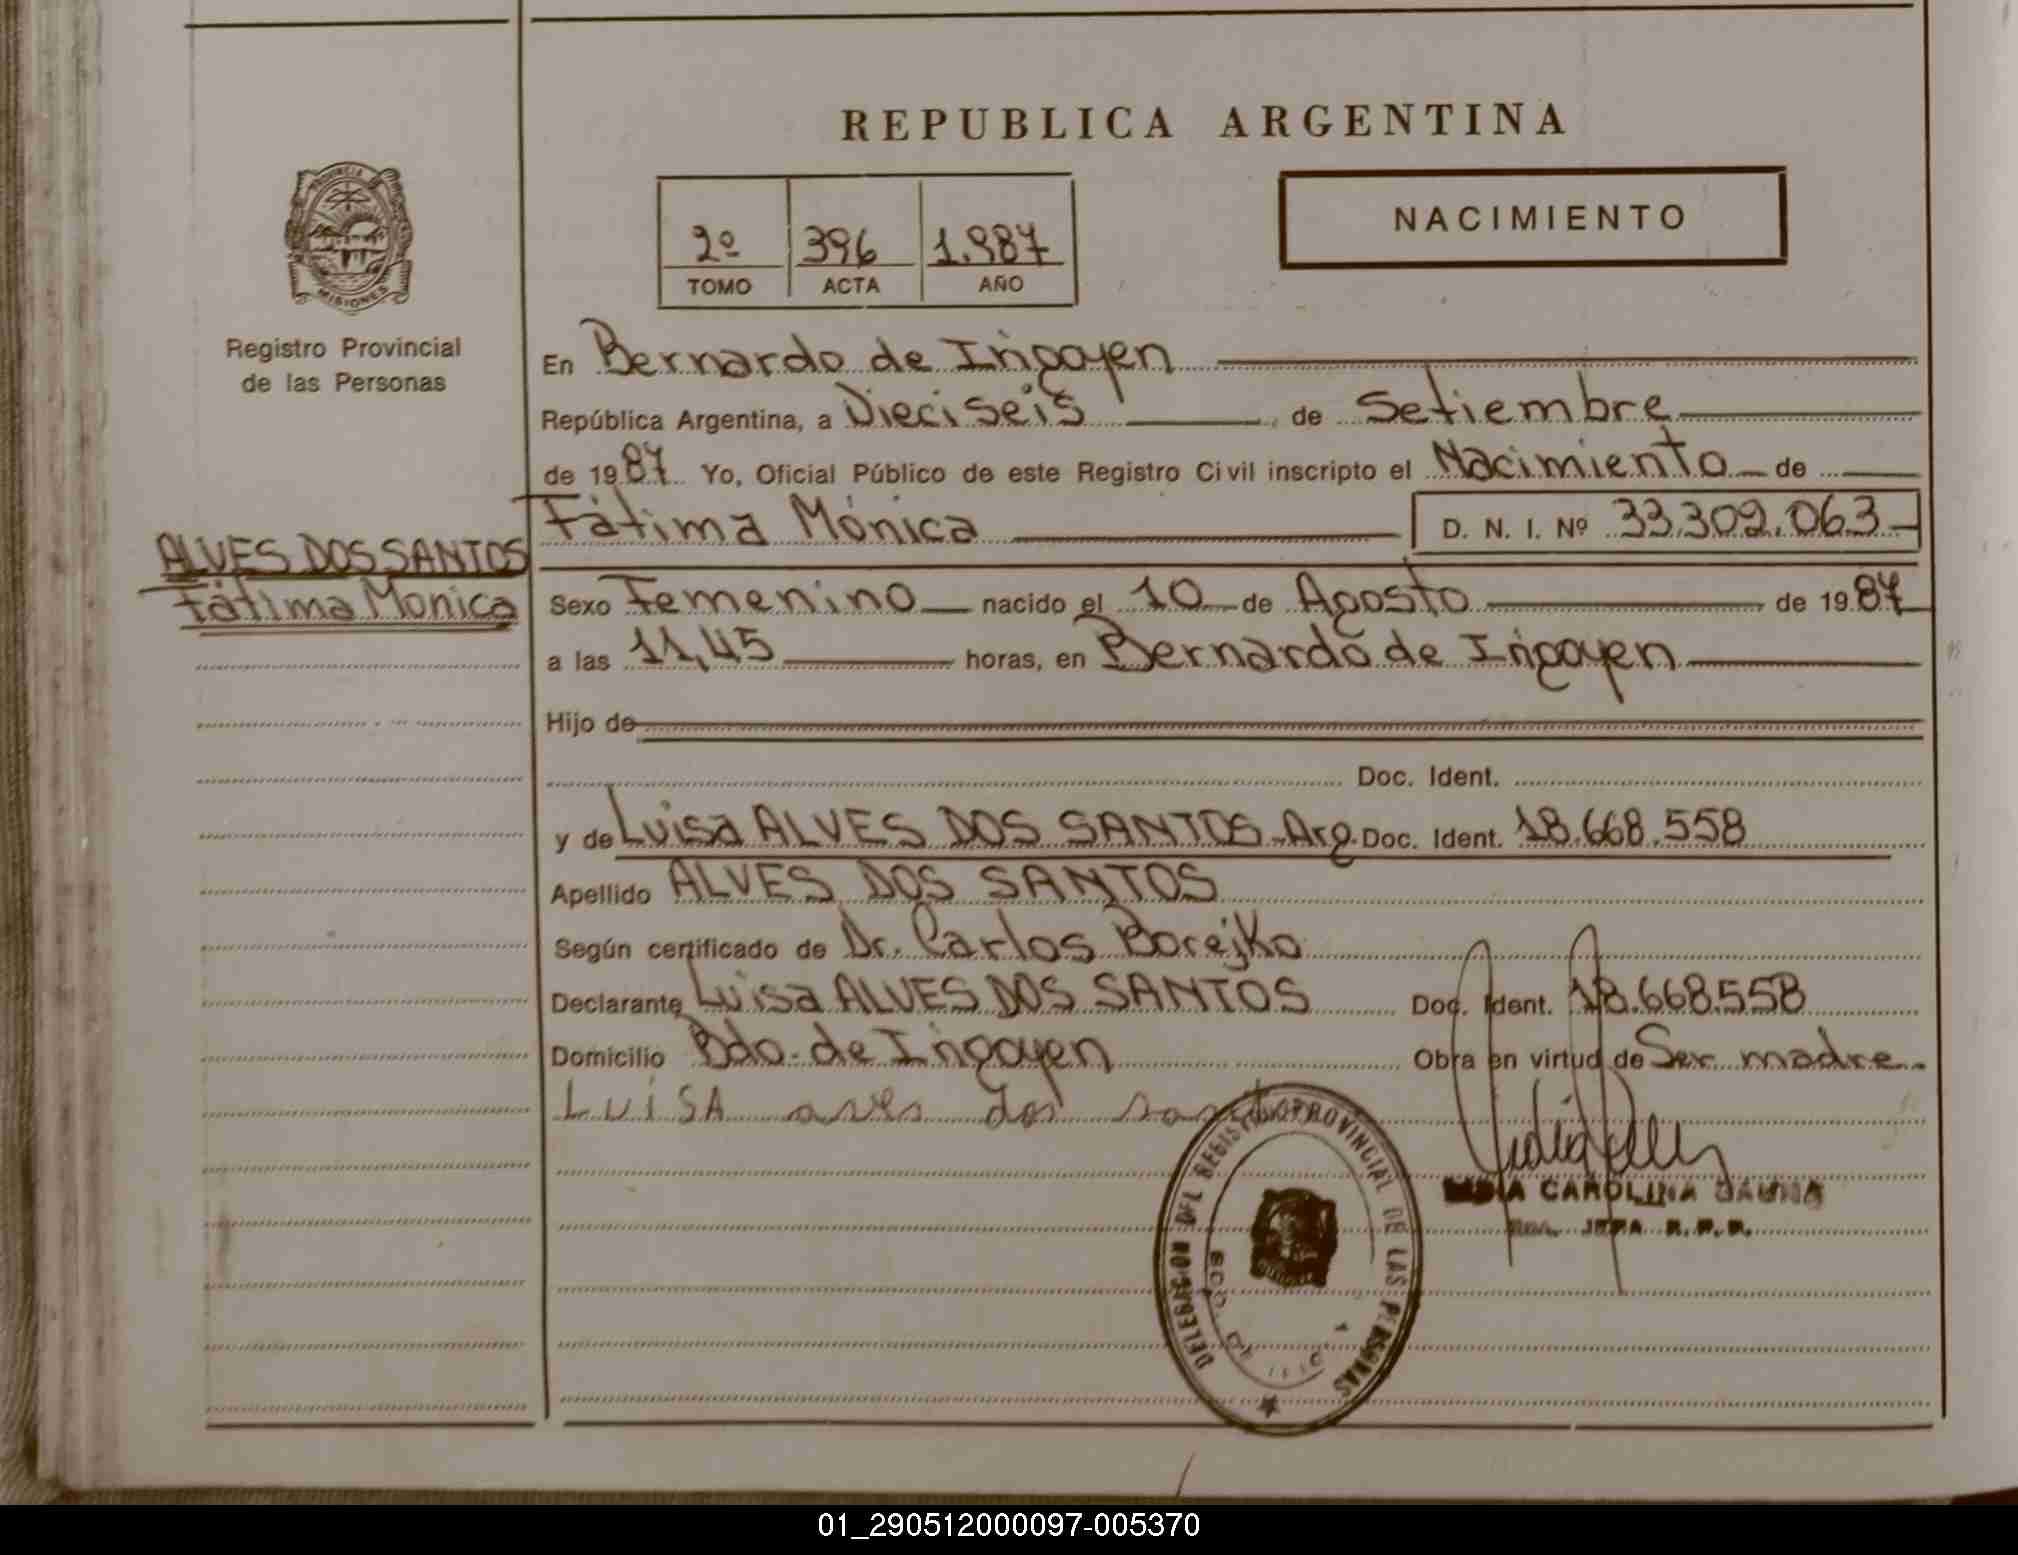 REPUBLICA ARGENTINA
PROVINCIA DE
MISIONES
Registro Provincial
de las Personas
2º 396 1.987
TOMO ACTA AÑO
NACIMIENTO
En Bernardo de Irigoyen
República Argentina, a Dieciseis, de Setiembre
de 1987 Yo, Oficial Público de este Registro Civil inscripto el Nacimiento de
Fátima Mónica D. N. I. Nº 33.302.063
ALVES DOS SANTOS
Fátima Mónica
Sexo Femenino nacido el 10 de Agosto de 1987
a las 11,45 horas, en Bernardo de Irigoyen
Hijo de
Doc. Ident.
y de Luisa ALVES DOS SANTOS-Arg. Doc. Ident. 18.668.558
Apellido ALVES DOS SANTOS
Según certificado de Dr. Carlos Borejko
Declarante Luisa ALVES DOS SANTOS Doc. Ident. 18.668.558
Domicilio Bdo. de Irigoyen Obra en virtud de Ser madre.
LUISA alves dos
DELEGACION DEL REGISTRO PROVINCIAL DE LAS PERSONAS
CAROLINA
JEFA R.P.P.
01_290512000097-005370